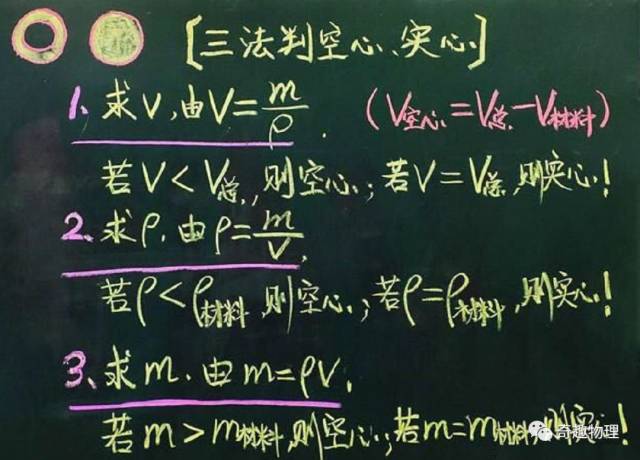 [三法判空心、实心]
1、求V,由V=m/ρ. (V空心=V总-V材料)
若V<V总,则空心;若V=V总,则实心!
2、求ρ.由ρ=m/V.
若ρ<ρ材料 则空心;若ρ=ρ材料,则实心!
3、求m.由m=ρV.
若m>m材料,则空心;若m=m材料,则实!
奇趣物理